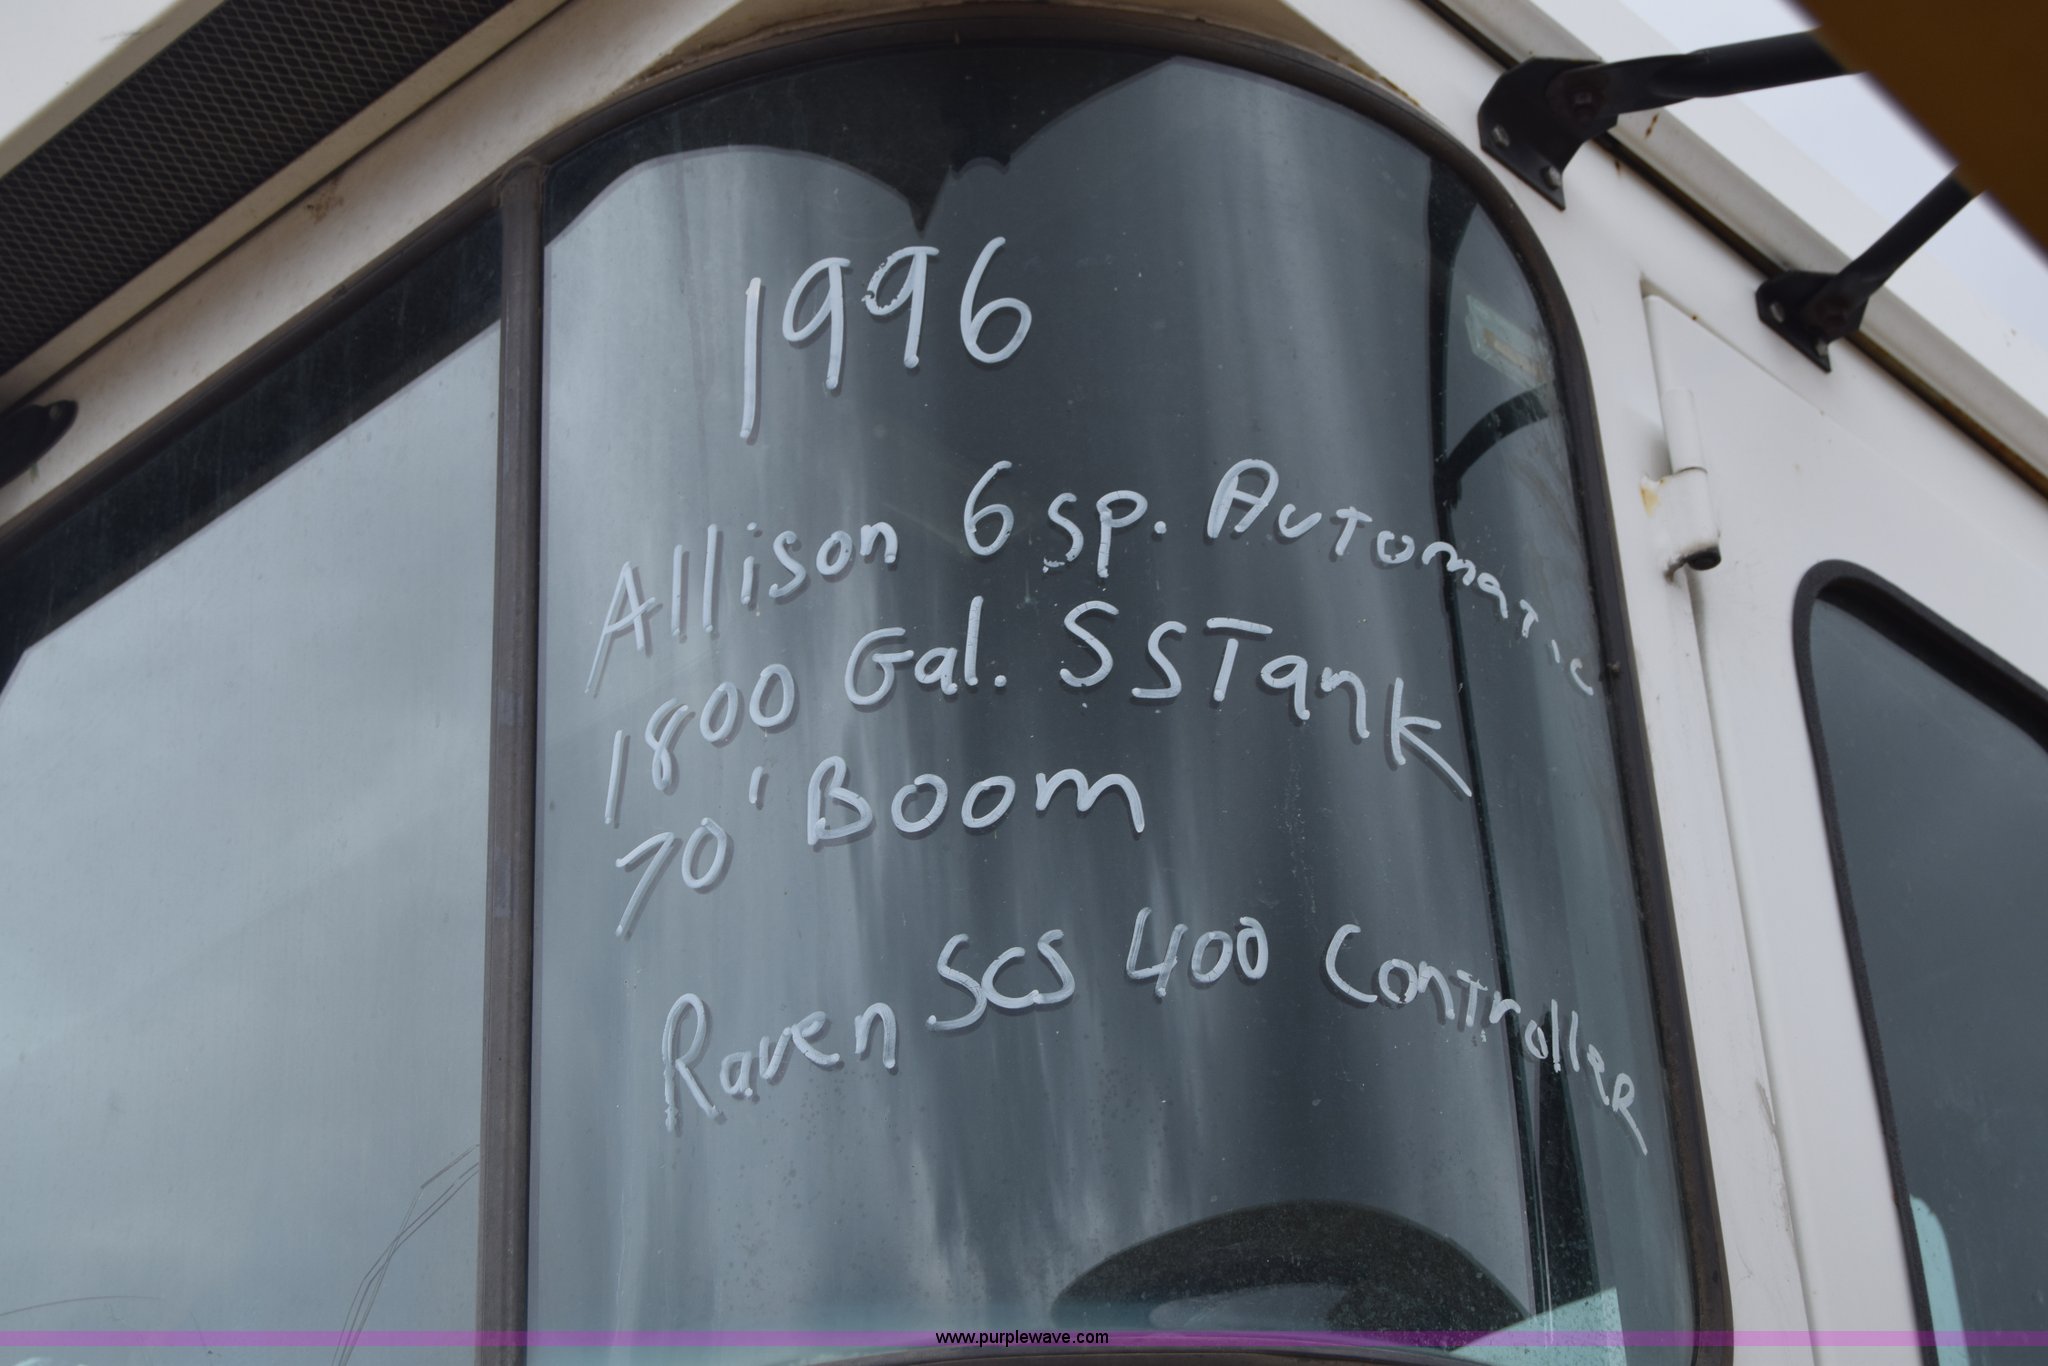 1996
Allison 6 sp. Automatic
1800 Gal. SS Tank
70' Boom
Raven SCS 400 Controller
www.purplewave.com